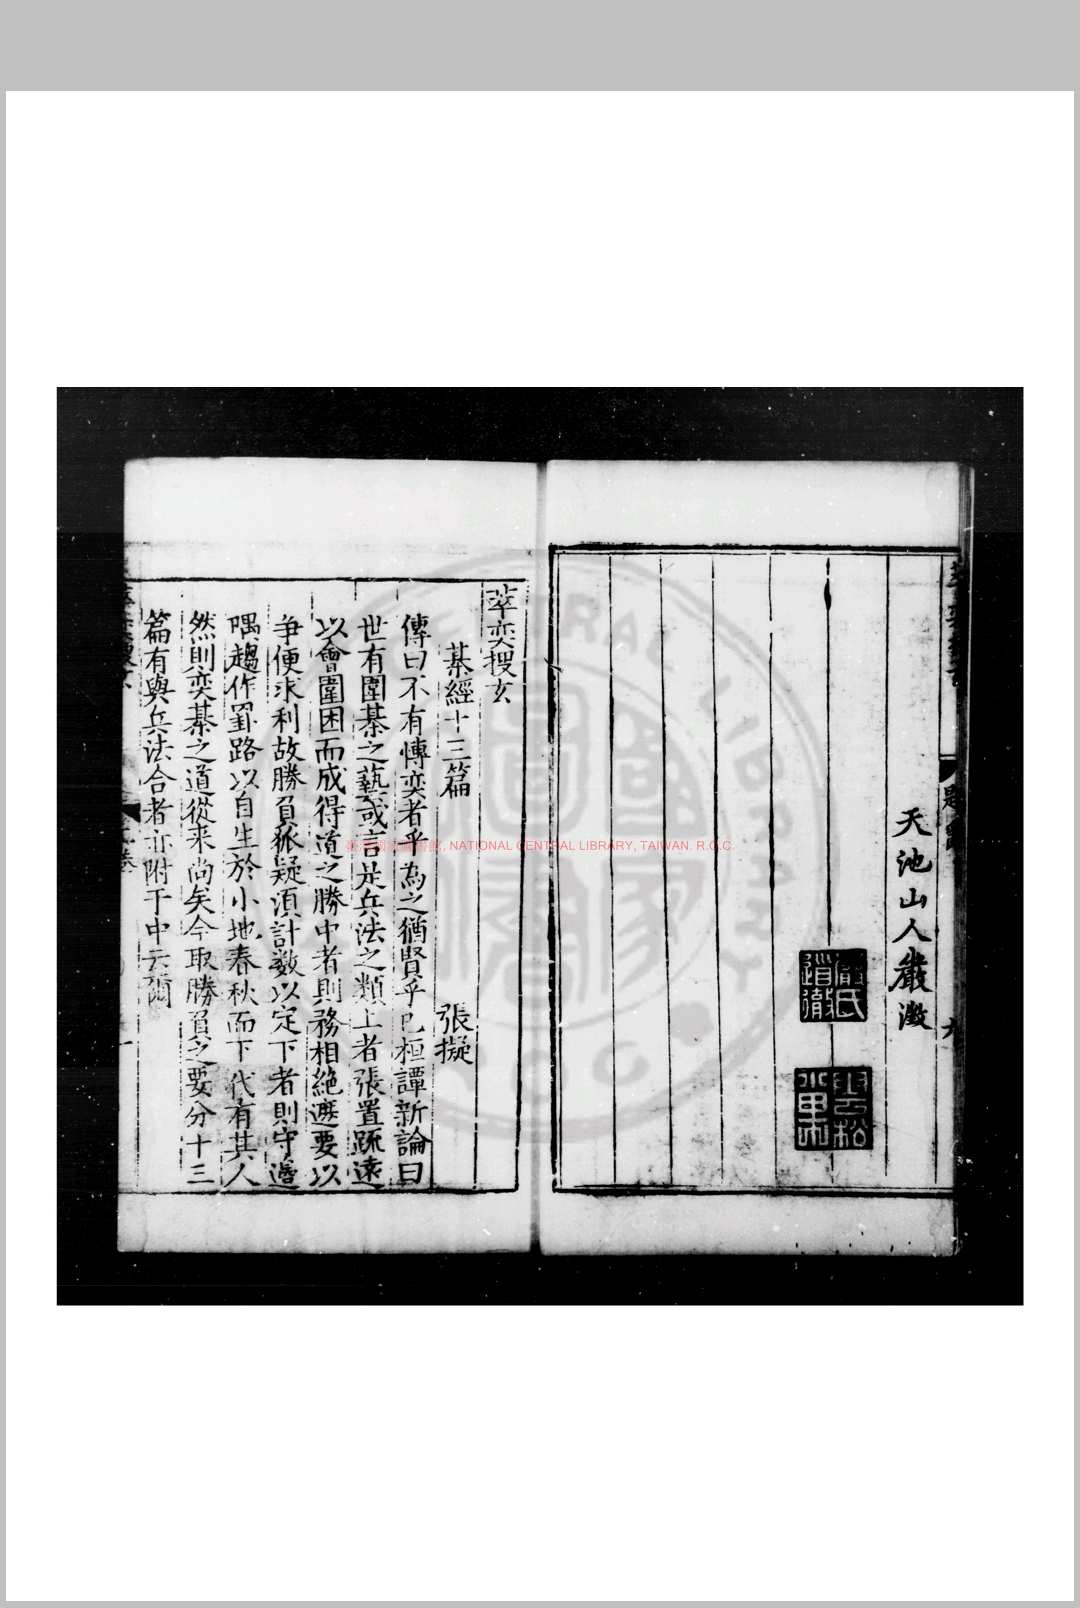 天池山人嚴澂
嚴氏道澈
萃奕搜玄
棊經十三篇
張擬
傳曰不有愽奕者乎為之猶賢乎已桓譚新論曰
世有圍棊之藝或言是兵法之類上者張置䟽遠
以會圍困而成得道之勝中者則務相絶遮要以
争便求利故勝負狐疑須計數以定下者則守邊
隅趨作罫路以自生於小地春秋而下代有其人
然則奕棊之道從来尚矣今取勝負之要分十三
篇有與兵法合者亦附于中云爾
NATIONAL CENTRAL LIBRARY, TAIWAN. R.O.C.